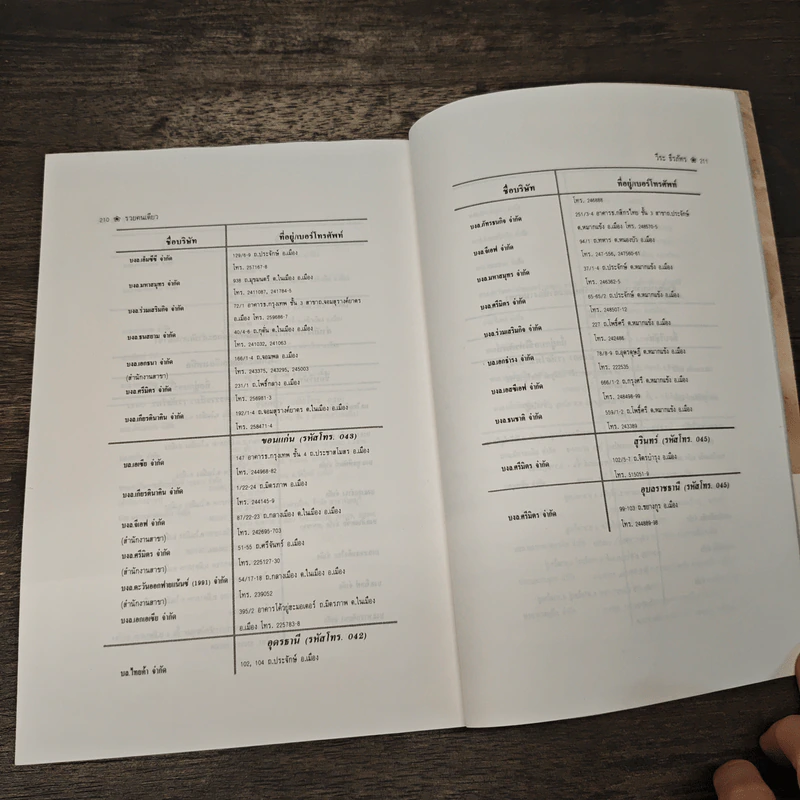 210 ❀ รวยคนเดียว
ชื่อบริษัท ที่อยู่/เบอร์โทรศัพท์
บงล.เอ็มซีซี จำกัด 129/6-9 ถ.ประจักษ์ อ.เมือง
โทร. 257187-8
บงล.มหาสมุทร จำกัด 938 ถ.มุขมนตรี ต.ในเมือง อ.เมือง
โทร. 2411087, 241784-5
บงล.ร่วมเสริมกิจ จำกัด 72/1 อาคารธ.กรุงเทพ ชั้น 3 สาขาถ.จอมสุรางค์ยาตร
อ.เมือง โทร. 259686-7
บงล.ธนสยาม จำกัด 40/4-6 ถ.กุดั่น ต.ในเมือง อ.เมือง
โทร. 241032, 241063
บงล.เอกธนา จำกัด 166/1-4 ถ.จอมพล อ.เมือง
(สำนักงานสาขา) โทร. 243375, 243295, 245003
บงล.ศรีมิตร จำกัด 231/1 ถ.โพธิ์กลาง อ.เมือง
โทร. 256981-3
บงล.เกียรตินาคิน จำกัด 192/1-4 ถ.จอมสุรางค์ยาตร ต.ในเมือง อ.เมือง
โทร. 258471-4
ขอนแก่น (รหัสโทร. 043)
บล.เอเซีย จำกัด 147 อาคารธ.กรุงเทพ ชั้น 4 ถ.ประชาสโมสร อ.เมือง
โทร. 244968-82
บงล.เกียรตินาคิน จำกัด 1/22-24 ถ.มิตรภาพ อ.เมือง
โทร. 244145-9
บงล.จีเอฟ จำกัด 87/22-23 ถ.กลางเมือง ต.ในเมือง อ.เมือง
(สำนักงานสาขา) โทร. 242695-703
บงล.ศรีมิตร จำกัด 51-55 ถ.ศรีจันทร์ อ.เมือง
(สำนักงานสาขา) โทร. 225127-30
บงล.ตะวันออกฟายแน้นซ์ (1991) จำกัด 54/17-18 ถ.กลางเมือง ต.ในเมือง อ.เมือง
(สำนักงานสาขา) โทร. 239052
บงล.เอกเอเซีย จำกัด 395/2 อาคารโค้วยู่ฮะมอเตอร์ ถ.มิตรภาพ ต.ในเมือง
อ.เมือง โทร. 225783-8
อุดรธานี (รหัสโทร. 042)
บล.ไทยค้า จำกัด 102, 104 ถ.ประจักษ์ อ.เมือง
วีระ ธีรภัทร ❀ 211
ชื่อบริษัท ที่อยู่/เบอร์โทรศัพท์
โทร. 246888
บงล.ภัทรธนกิจ จำกัด 251/3-4 อาคารธ.กสิกรไทย ชั้น 3 สาขาถ.ประจักษ์
ต.หมากแข้ง อ.เมือง โทร. 248670-5
บงล.จีเอฟ จำกัด 94/1 ถ.ทหาร ต.หนองบัว อ.เมือง
โทร. 247-556, 247560-61
บงล.มหาสมุทร จำกัด 37/1-4 ถ.ประจักษ์ ต.หมากแข้ง อ.เมือง
โทร. 246382-5
บงล.ศรีมิตร จำกัด 65-65/2 ถ.ประจักษ์ ต.หมากแข้ง อ.เมือง
โทร. 248507-12
บงล.ร่วมเสริมกิจ จำกัด 227 ถ.โพธิ์ศรี ต.หมากแข้ง อ.เมือง
โทร. 242486
บล.เอกธำรง จำกัด 78/8-9 ถ.อุดรดุษฎี ต.หมากแข้ง อ.เมือง
โทร. 222535
บงล.เอสซีเอฟ จำกัด 666/1-2 ถ.กรุงศรี ต.หมากแข้ง อ.เมือง
โทร. 248498-99
บงล.ธนชาติ จำกัด 559/1-2 ถ.โพธิ์ศรี ต.หมากแข้ง อ.เมือง
โทร. 243389
สุรินทร์ (รหัสโทร. 045)
บงล.ศรีมิตร จำกัด 102/5-7 ถ.จิตรบำรุง อ.เมือง
โทร. 515051-9
อุบลราชธานี (รหัสโทร. 045)
บงล.ศรีมิตร จำกัด 99-103 ถ.ชยางกูร อ.เมือง
โทร. 244889-98